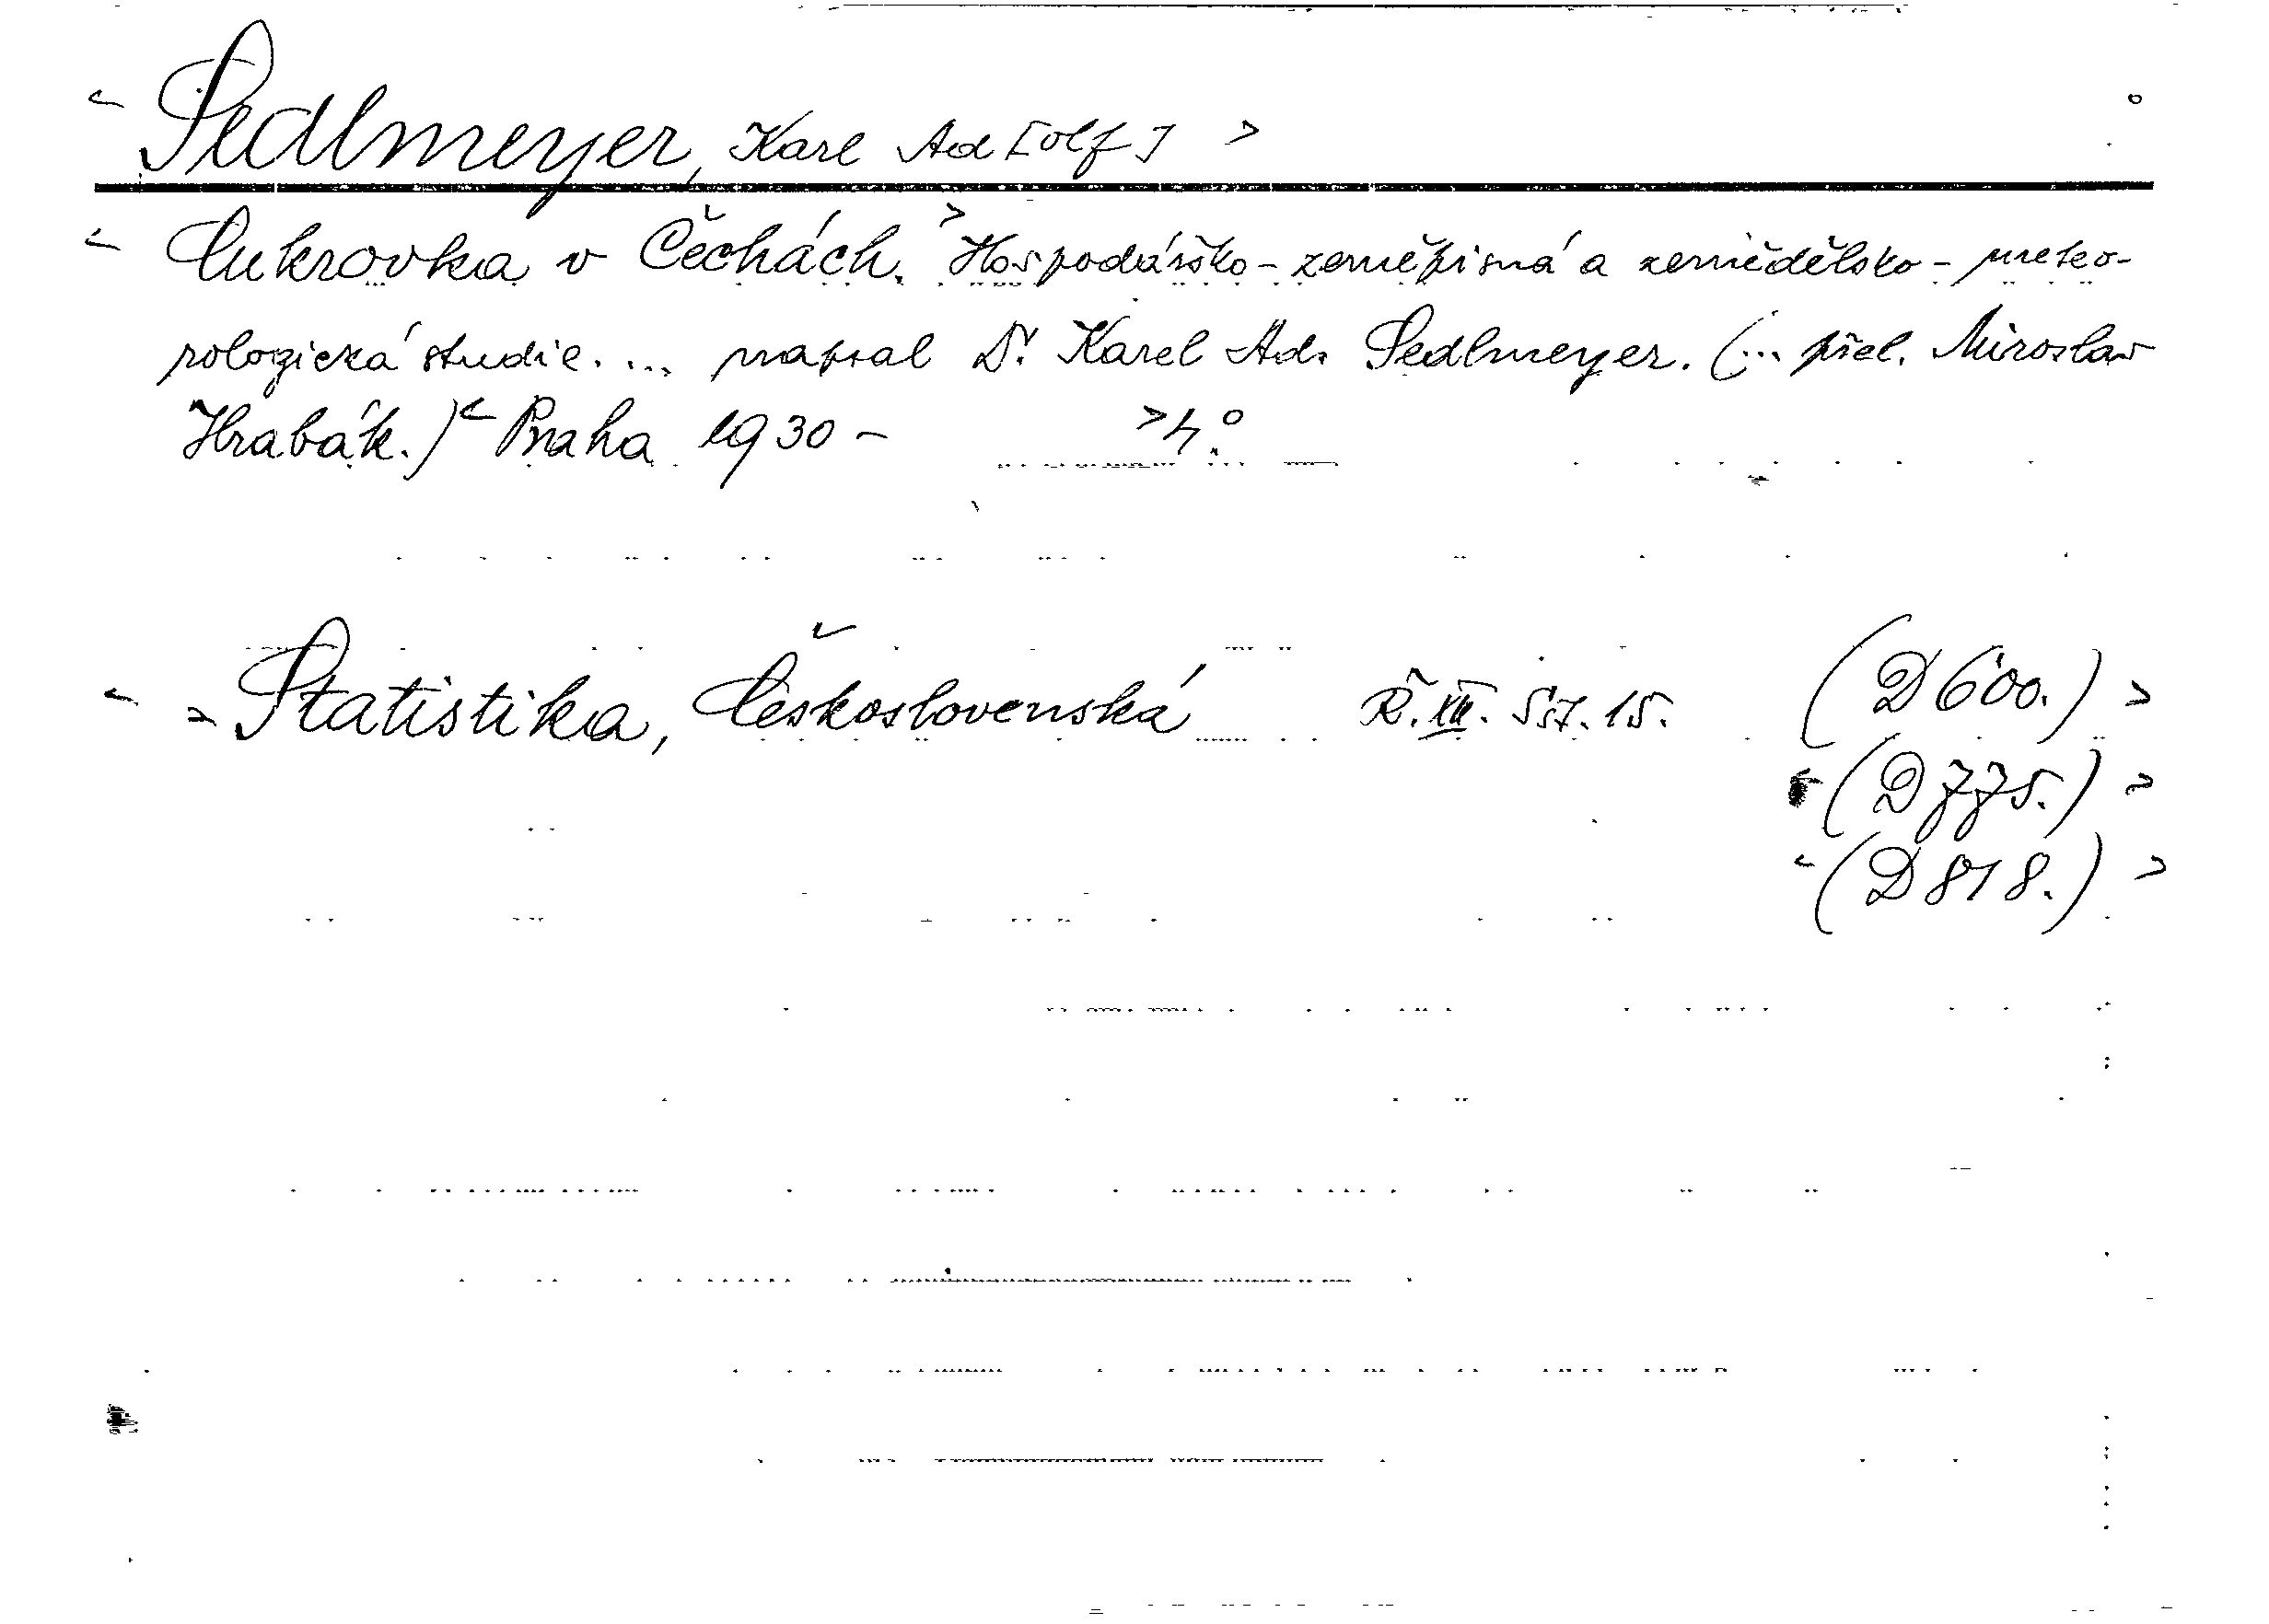 < Sedlmeyer, Karl Ad[olf] >
< Cukrovka v Čechách. > Hospodářsko-zeměpisná a zemědělsko-meteo-
rologická studie. ... napsal Dr. Karel Ad. Sedlmeyer. (... přel. Miroslav
Hrabák.) < Praha 1930 - > 4.°
< = Statistika, Československá Ř. XII. Seš. 15. (D 600.) >
< (D 775.) >
< (D 818.) >